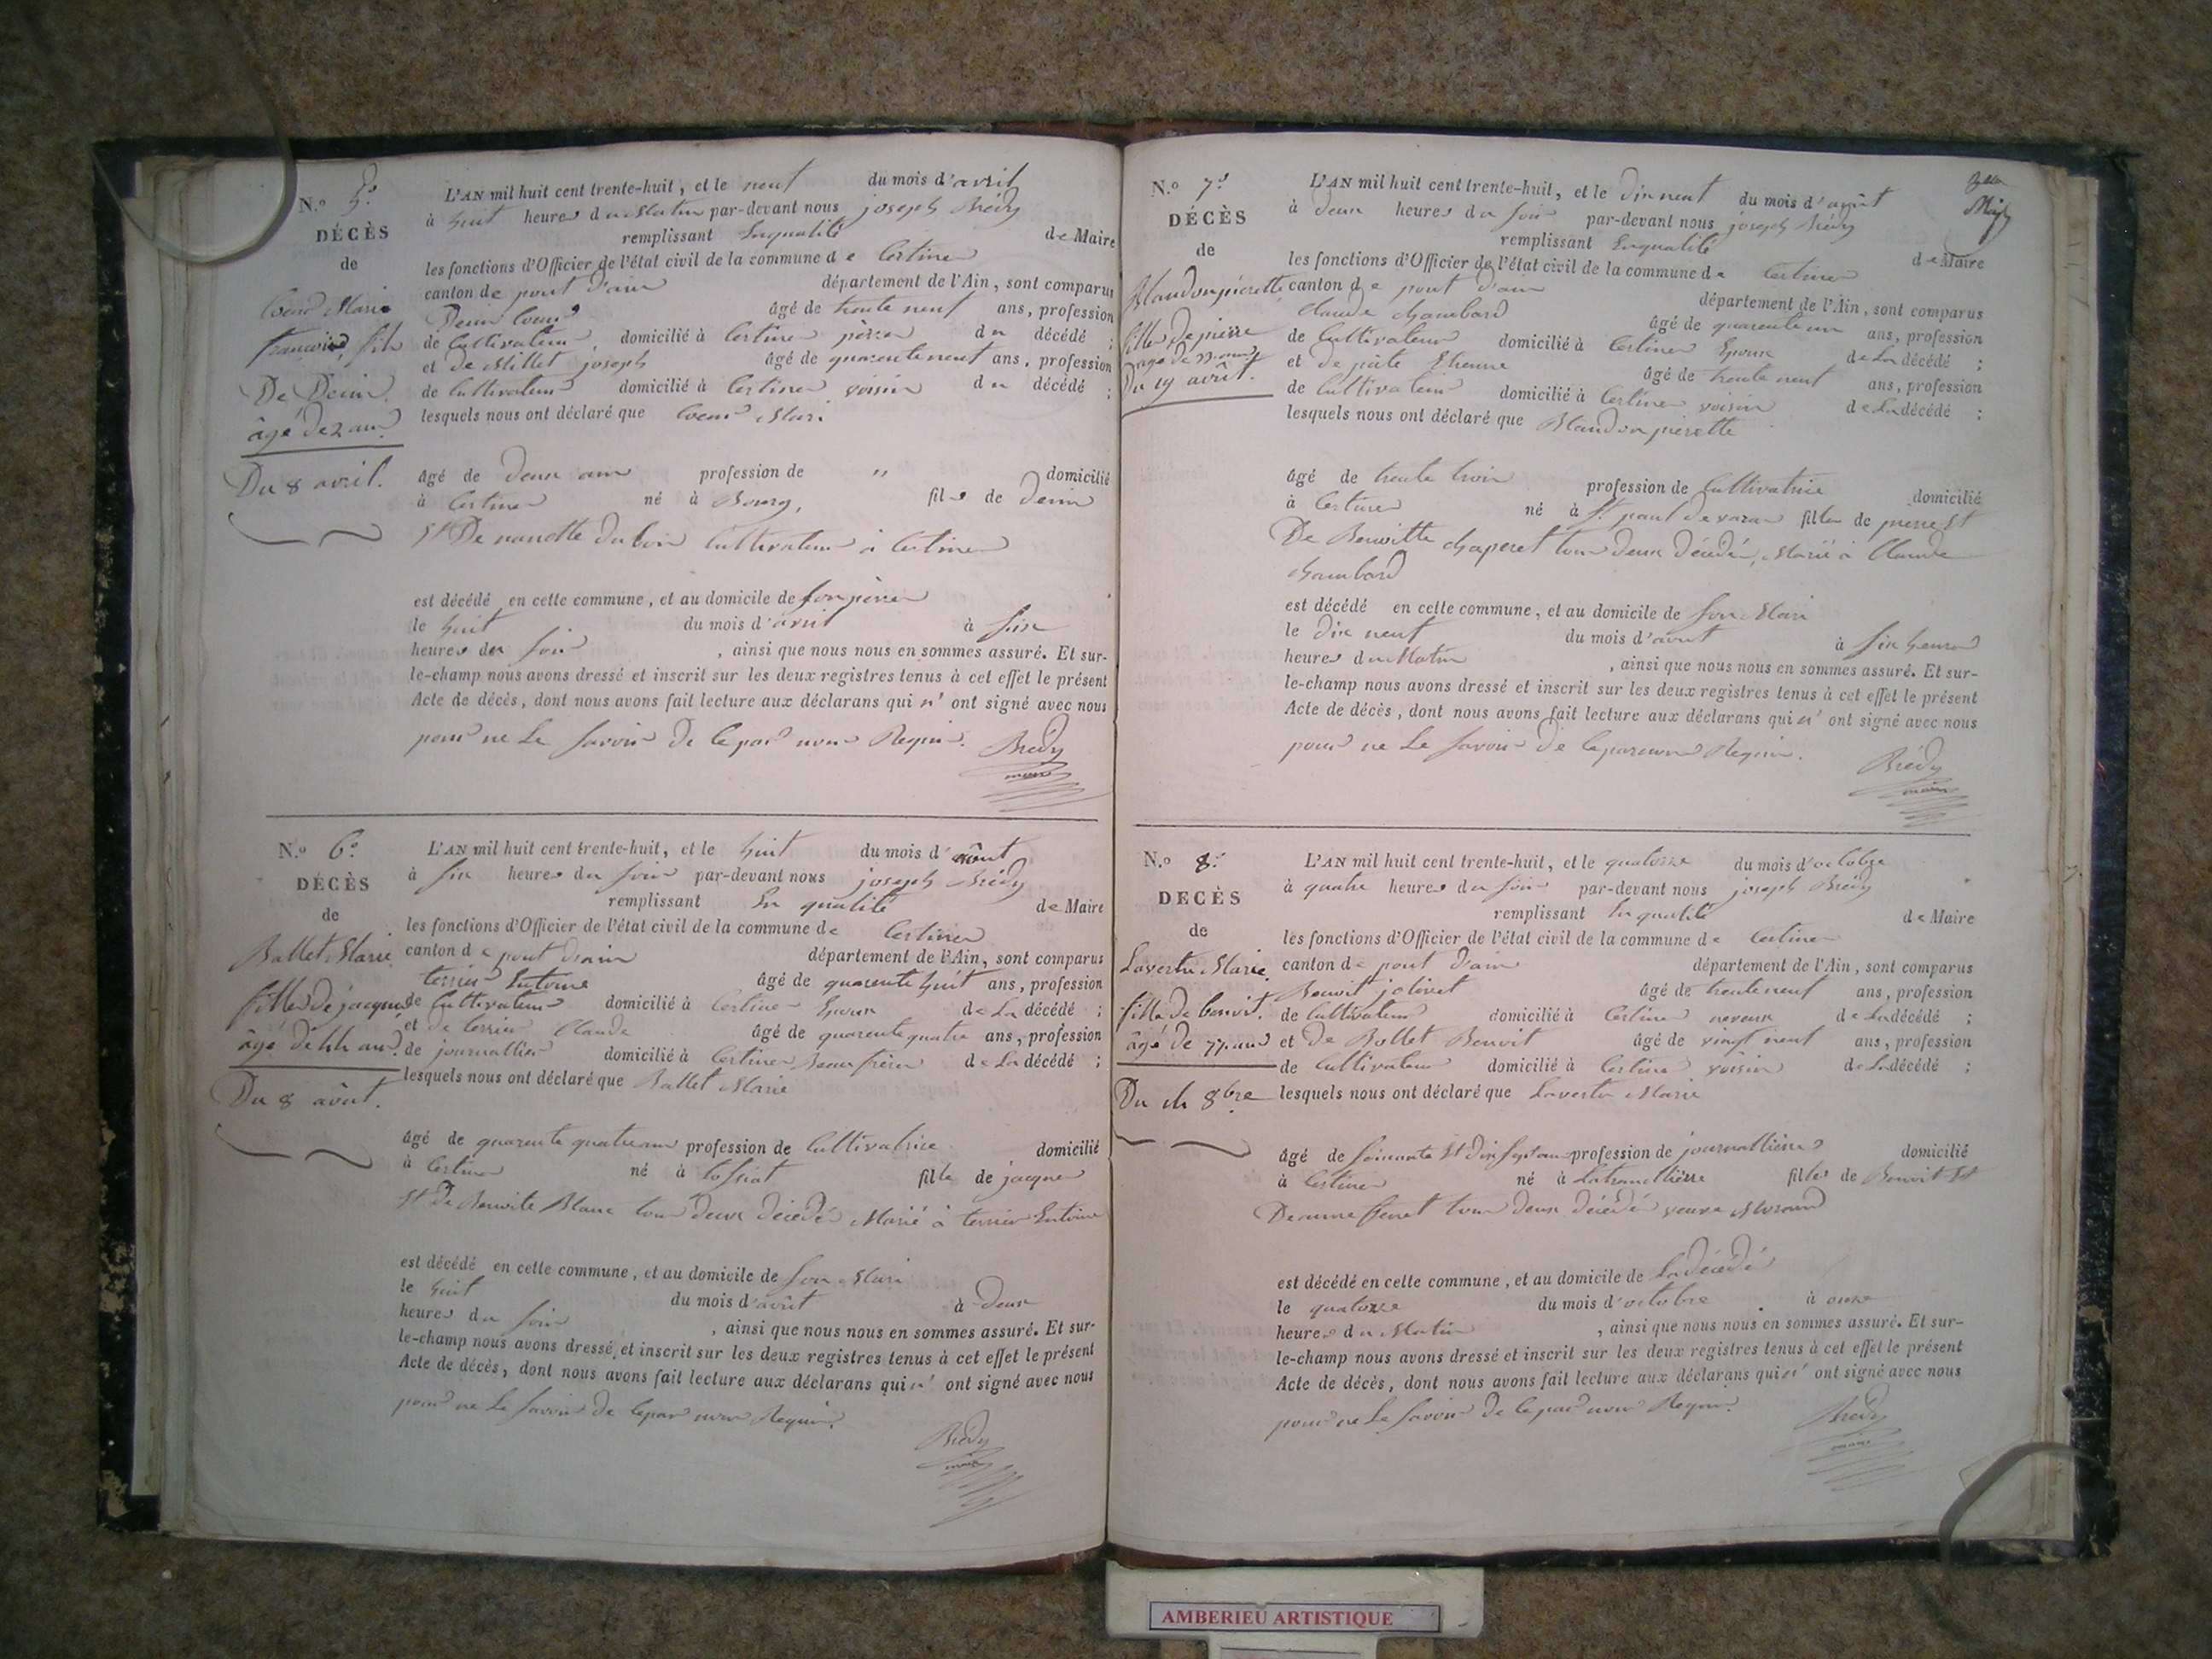 N.º 5.º
DÉCÈS
de
Coeur Marie
françois, fils
De Denis.
âgé de 2 ans.
Du 8 avril.
L'AN mil huit cent trente-huit, et le neuf du mois d'avril
à huit heures du Matin par-devant nous joseph Brédy
remplissant En qualité de Maire
les fonctions d'Officier de l'état civil de la commune de Certines
canton de pont d'ain département de l'Ain, sont comparus
Denis Coeur âgé de trente neuf ans, profession
de Cultivateur, domicilié à Certines père du décédé ;
et de Millet joseph âgé de quarente neuf ans, profession
de Cultivateur domicilié à Certines voisin du décédé ;
lesquels nous ont déclaré que Coeur Marie
âgé de deux ans profession de " domicilié
à Certines né à Bourg, fils de Denis
Et De nanette Dubois Cultivateur à Certines
est décédé en cette commune, et au domicile de son père
le huit du mois d'avril à six
heures du soir, ainsi que nous nous en sommes assuré. Et sur-
le-champ nous avons dressé et inscrit sur les deux registres tenus à cet effet le présent
Acte de décès, dont nous avons fait lecture aux déclarans qui n'ont signé avec nous
pour ne Le savoir De Ce par nous Requis. Brédy
maire
N.º 6.º
DÉCÈS
de
Ballet Marie
fille de jacques
âgé de 44 ans.
Du 8 août.
L'AN mil huit cent trente-huit, et le huit du mois d'août
à six heures du soir par-devant nous joseph Brédy
remplissant En qualité de Maire
les fonctions d'Officier de l'état civil de la commune de Certines
canton de pont d'ain département de l'Ain, sont comparus
terrier Entoine âgé de quarente huit ans, profession
de Cultivateur domicilié à Certines Epoux de La décédé ;
et de terrier Claude âgé de quarente quatre ans, profession
de journallier domicilié à Certines Beau frère de La décédé ;
lesquels nous ont déclaré que Ballet Marie
âgé de quarente quatre ans profession de Cultivatrice domicilié
à Certines né à tossiat fille de jacques
Et De Benoite Blanc tous deux décédés Marié à terrier Entoine
est décédé en cette commune, et au domicile de son Mari
le huit du mois d'août à Deux
heures du soir, ainsi que nous nous en sommes assuré. Et sur-
le-champ nous avons dressé et inscrit sur les deux registres tenus à cet effet le présent
Acte de décès, dont nous avons fait lecture aux déclarans qui n'ont signé avec nous
pour ne Le savoir De Ce par nous Requis.
Brédy
maire
N.º 7.º
DÉCÈS
de
Blandon pierette
fille de pierre
âgé de 33 ans
Du 19 août.
L'AN mil huit cent trente-huit, et le Dix neuf du mois d'août
à deux heures du soir par-devant nous joseph Brédy
remplissant En qualité de Maire
les fonctions d'Officier de l'état civil de la commune de Certines
canton de pont d'ain département de l'Ain, sont comparus
Claude Chambard âgé de quarente un ans, profession
de Cultivateur domicilié à Certines Epoux de La décédé ;
et de Etienne âgé de trente neuf ans, profession
de Cultivateur domicilié à Certines voisin de La décédé ;
lesquels nous ont déclaré que Blandon pierette
âgé de trente trois profession de Cultivatrice domicilié
à Certines né à St paul de varax fille de pierre Et
De Benoitte chaperet tous deux décédés, Marié à Claude
Chambard
est décédé en cette commune, et au domicile de son Mari
le dix neuf du mois d'août à six heures
heures du Matin, ainsi que nous nous en sommes assuré. Et sur-
le-champ nous avons dressé et inscrit sur les deux registres tenus à cet effet le présent
Acte de décès, dont nous avons fait lecture aux déclarans qui n'ont signé avec nous
pour ne Le savoir De Ce par nous Requis.
Brédy
maire
N.º 8.º
DÉCÈS
de
Lavertu Marie
fille de benoit.
âgé de 77 ans
Du 14 8bre
L'AN mil huit cent trente-huit, et le quatorze du mois d'octobre
à quatre heures du soir par-devant nous joseph Brédy
remplissant En qualité de Maire
les fonctions d'Officier de l'état civil de la commune de Certines
canton de pont d'ain département de l'Ain, sont comparus
Benoit jolivet âgé de trente neuf ans, profession
de Cultivateur domicilié à Certines neveux de La décédé ;
et De Ballet Benoit âgé de vingt neuf ans, profession
de Cultivateur domicilié à Certines voisin de La décédé ;
lesquels nous ont déclaré que Lavertu Marie
âgé de soixante Et Dix sept ans profession de journallière domicilié
à Certines né à Latranclière fille de Benoit Et
De anne tous deux décédés veuve Morand
est décédé en cette commune, et au domicile de La décédé
le quatorze du mois d'octobre à onze
heures du Matin, ainsi que nous nous en sommes assuré. Et sur-
le-champ nous avons dressé et inscrit sur les deux registres tenus à cet effet le présent
Acte de décès, dont nous avons fait lecture aux déclarans qui n'ont signé avec nous
pour ne Le savoir De Ce par nous Requis.
Brédy
maire
AMBERIEU ARTISTIQUE